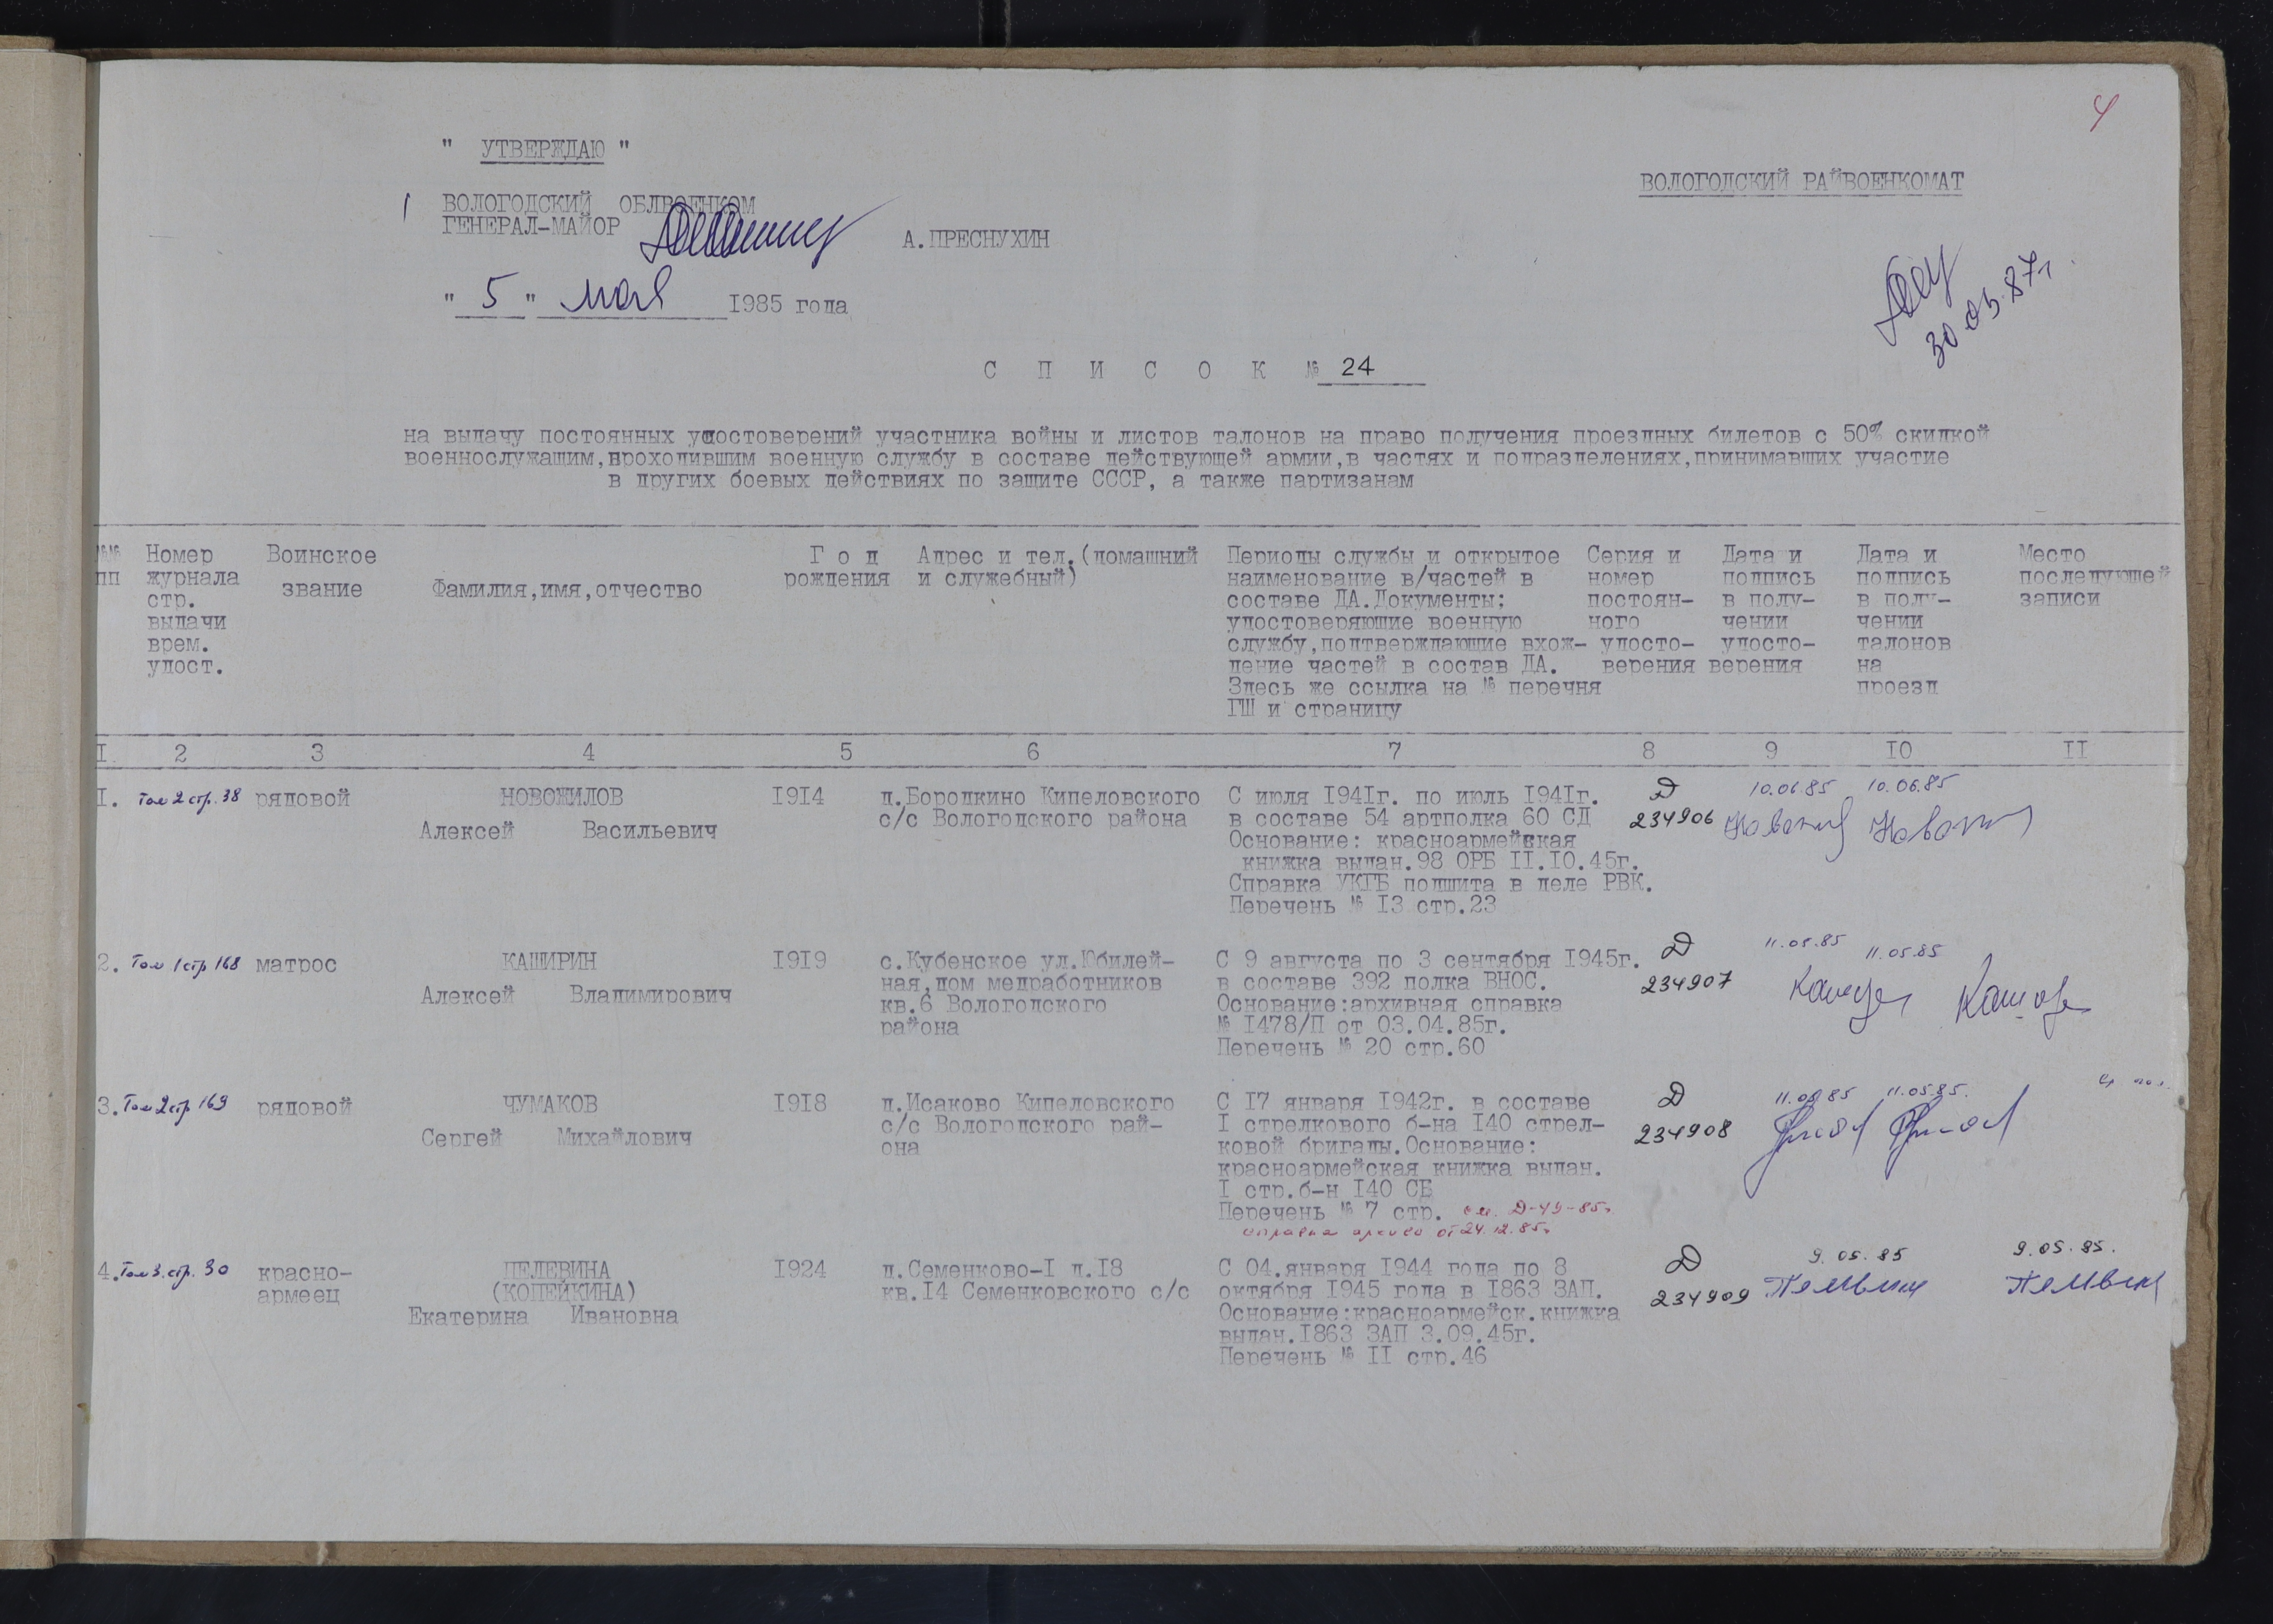 4
" УТВЕРЖДАЮ "
ВОЛОГОДСКИЙ РАЙВОЕНКОМАТ
ВОЛОГОДСКИЙ ОБЛВОЕНКОМ
ГЕНЕРАЛ-МАЙОР
А.ПРЕСНУХИН
" 5 " мая 1985 года
30.05.87г.
С П И С О К № 24
на выдачу постоянных удостоверений участника войны и листов талонов на право получения проездных билетов с 50% скидкой
военнослужащим,проходившим военную службу в составе действующей армии,в частях и подразделениях,принимавших участие
в других боевых действиях по защите СССР, а также партизанам
№№ пп
Номер журнала стр. выдачи врем. удост.
Воинское звание
Фамилия,имя,отчество
Г о д рождения
Адрес и тел.(домашний и служебный)
Периоды службы и открытое
наименование в/частей в
составе ДА.Документы;
удостоверяющие военную
службу,подтверждающие вхож-
дение частей в состав ДА.
Здесь же ссылка на № перечня
ГШ и страницу
Серия и номер постоян- ного удосто- верения
Дата и подпись в полу- чении удосто- верения
Дата и подпись в полу- чении талонов на проезд
Место последующей записи
I. 2 3 4 5 6 7 8 9 IO II
I. Том 2 стр. 38 рядовой
НОВОЖИЛОВ
Алексей Васильевич
I9I4
д.Бородкино Кипеловского
с/с Вологодского района
С июля I94Iг. по июль I94Iг.
в составе 54 артполка 60 СД
Основание: красноармейская
книжка выдан.98 ОРБ II.IO.45г.
Справка УКГБ подшита в деле РВК.
Перечень № I3 стр.23
Д
234906
10.06.85
10.06.85
2. Том 1 стр 168 матрос
КАШИРИН
Алексей Владимирович
I9I9
с.Кубенское ул.Юбилей-
ная,дом медработников
кв.6 Вологодского
района
С 9 августа по 3 сентября I945г.
в составе 392 полка ВНОС.
Основание:архивная справка
№ I478/П от 03.04.85г.
Перечень № 20 стр.60
Д
234907
11.05.85
11.05.85
3. Том 2 стр 169 рядовой
ЧУМАКОВ
Сергей Михайлович
I9I8
д.Исаково Кипеловского
с/с Вологодского рай-
она
С I7 января I942г. в составе
I стрелкового б-на I40 стрел-
ковой бригады.Основание:
красноармейская книжка выдан.
I стр.б-н I40 СБ
Перечень № 7 стр. см. Д-49-85г.
справка архива от 24.12.85г.
Д
234908
11.05.85
11.05.85.
4. Том 3. стр. 30 красно-
армеец
ПЕЛЕВИНА
(КОПЕЙКИНА)
Екатерина Ивановна
I924
д.Семенково-I д.I8
кв.I4 Семенковского с/с
С 04.января I944 года по 8
октября I945 года в I863 ЗАП.
Основание:красноармейск.книжка
выдан.I863 ЗАП 3.09.45г.
Перечень № II стр.46
Д
234909
9.05.85
9.05.85.